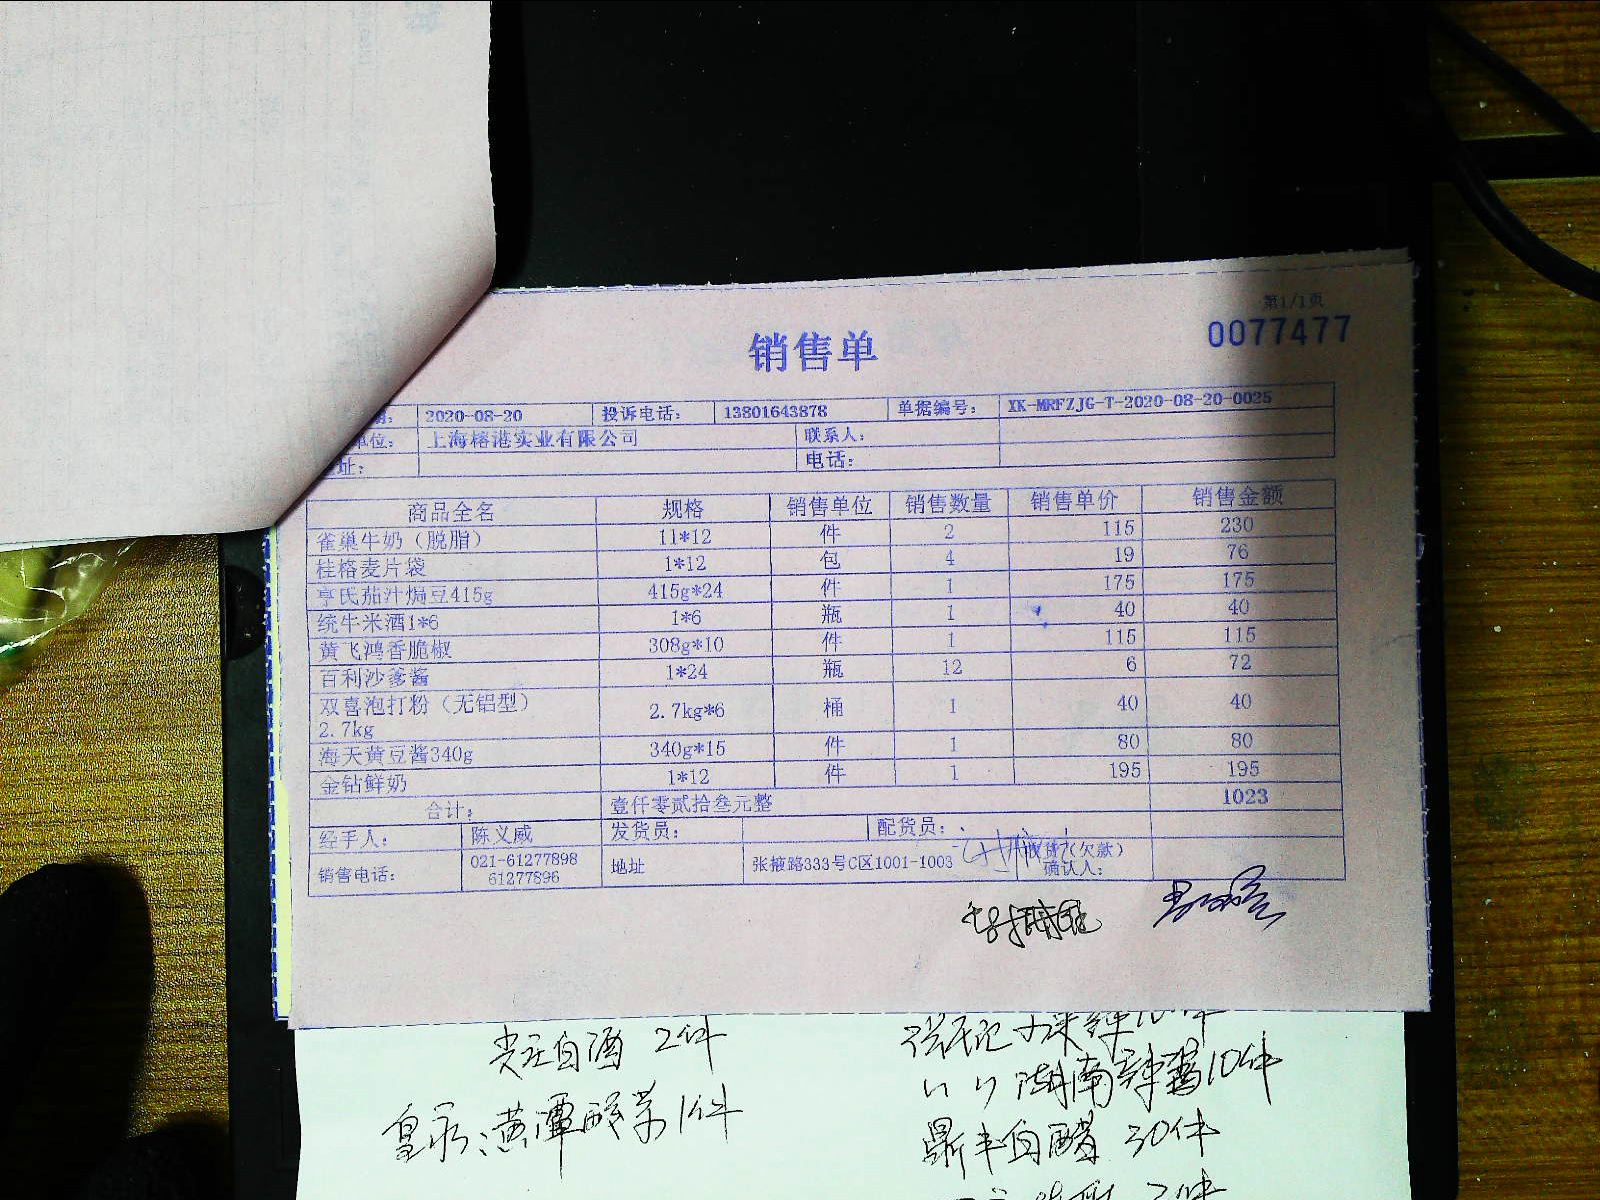 第1/1页
0077477
销售单
2020-08-20 投诉电话: 13801643878 单据编号: XK-MRFZJG-T-2020-08-20-0025
单位: 上海榕港实业有限公司 联系人:
址: 电话:
商品全名 规格 销售单位 销售数量 销售单价 销售金额
雀巢牛奶（脱脂） 11*12 件 2 115 230
桂格麦片袋 1*12 包 4 19 76
亨氏茄汁焗豆415g 415g*24 件 1 175 175
统牛米酒1*6 1*6 瓶 1 40 40
黄飞鸿香脆椒 308g*10 件 1 115 115
百利沙爹酱 1*24 瓶 12 6 72
双喜泡打粉（无铝型） 2.7kg*6 桶 1 40 40
2.7kg
海天黄豆酱340g 340g*15 件 1 80 80
金钻鲜奶 1*12 件 1 195 195
合计: 壹仟零贰拾叁元整 1023
经手人: 陈义威 发货员: 配货员:
销售电话: 021-61277898 地址 张掖路333号C区1001-1003 收货(欠款)
61277896 确认人:
白酒 2件
1件
湖南辣酱10件
鼎丰白醋 30件